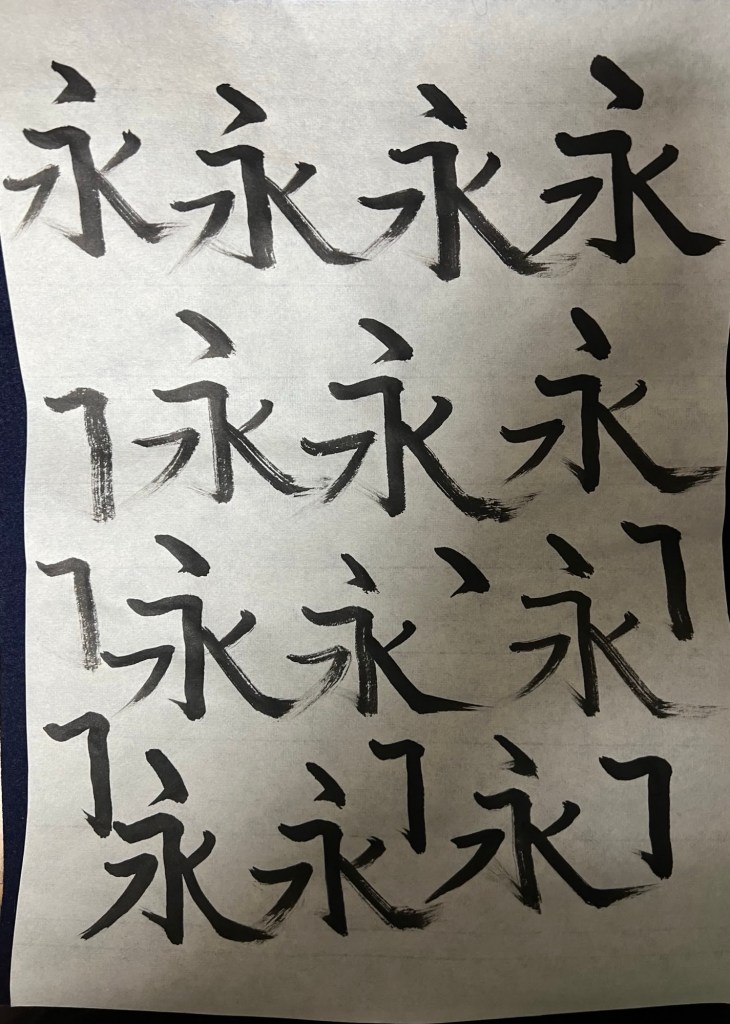 永永永永
永永永
永永永
永永永